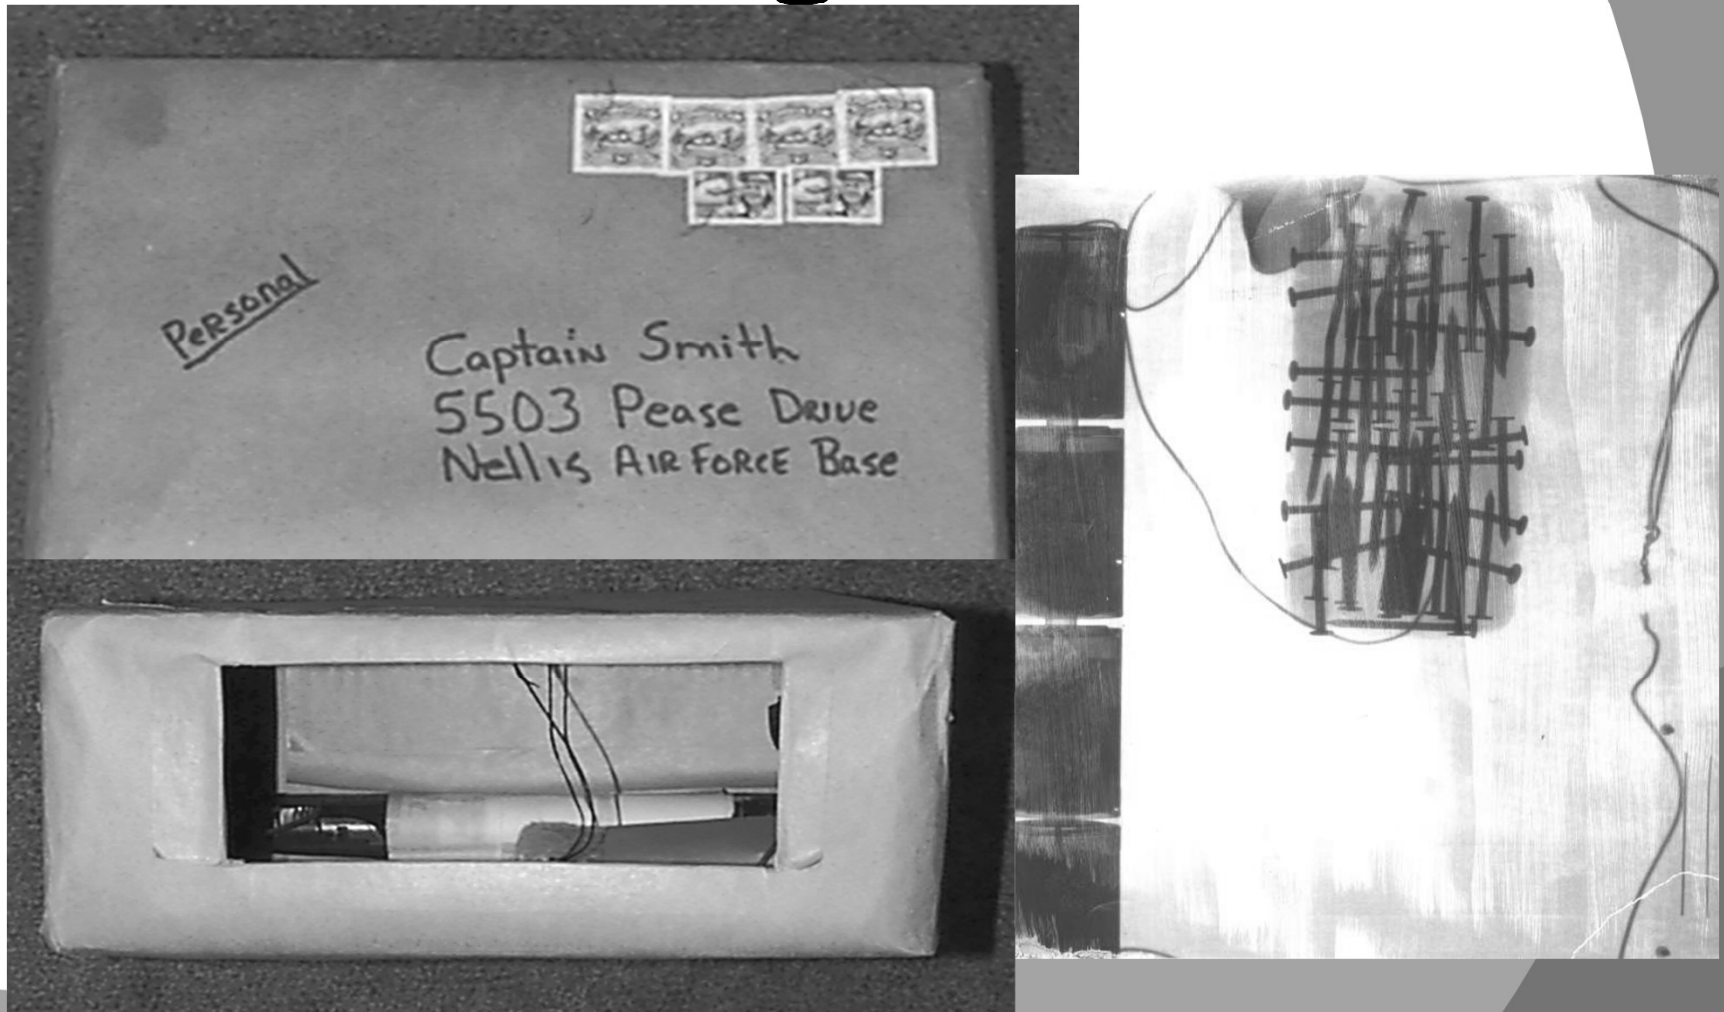 Personal
Captain Smith
5503 Pease Drive
Nellis Air Force Base